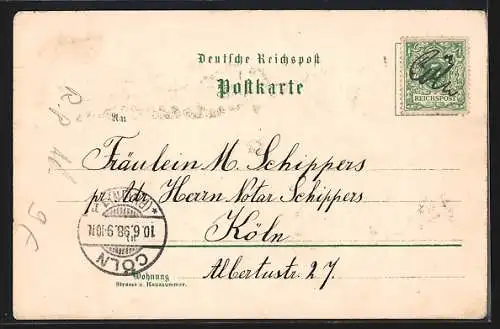 Deutsche Reichspost
Postkarte
REICHSPOST
An
Fräulein M. Schippers
pr Adr Herrn Notar Schippers
Köln
Albertustr. 27
CÖLN
10.6.98.9-10N.
Wohnung
Strasse u. Hausnummer.